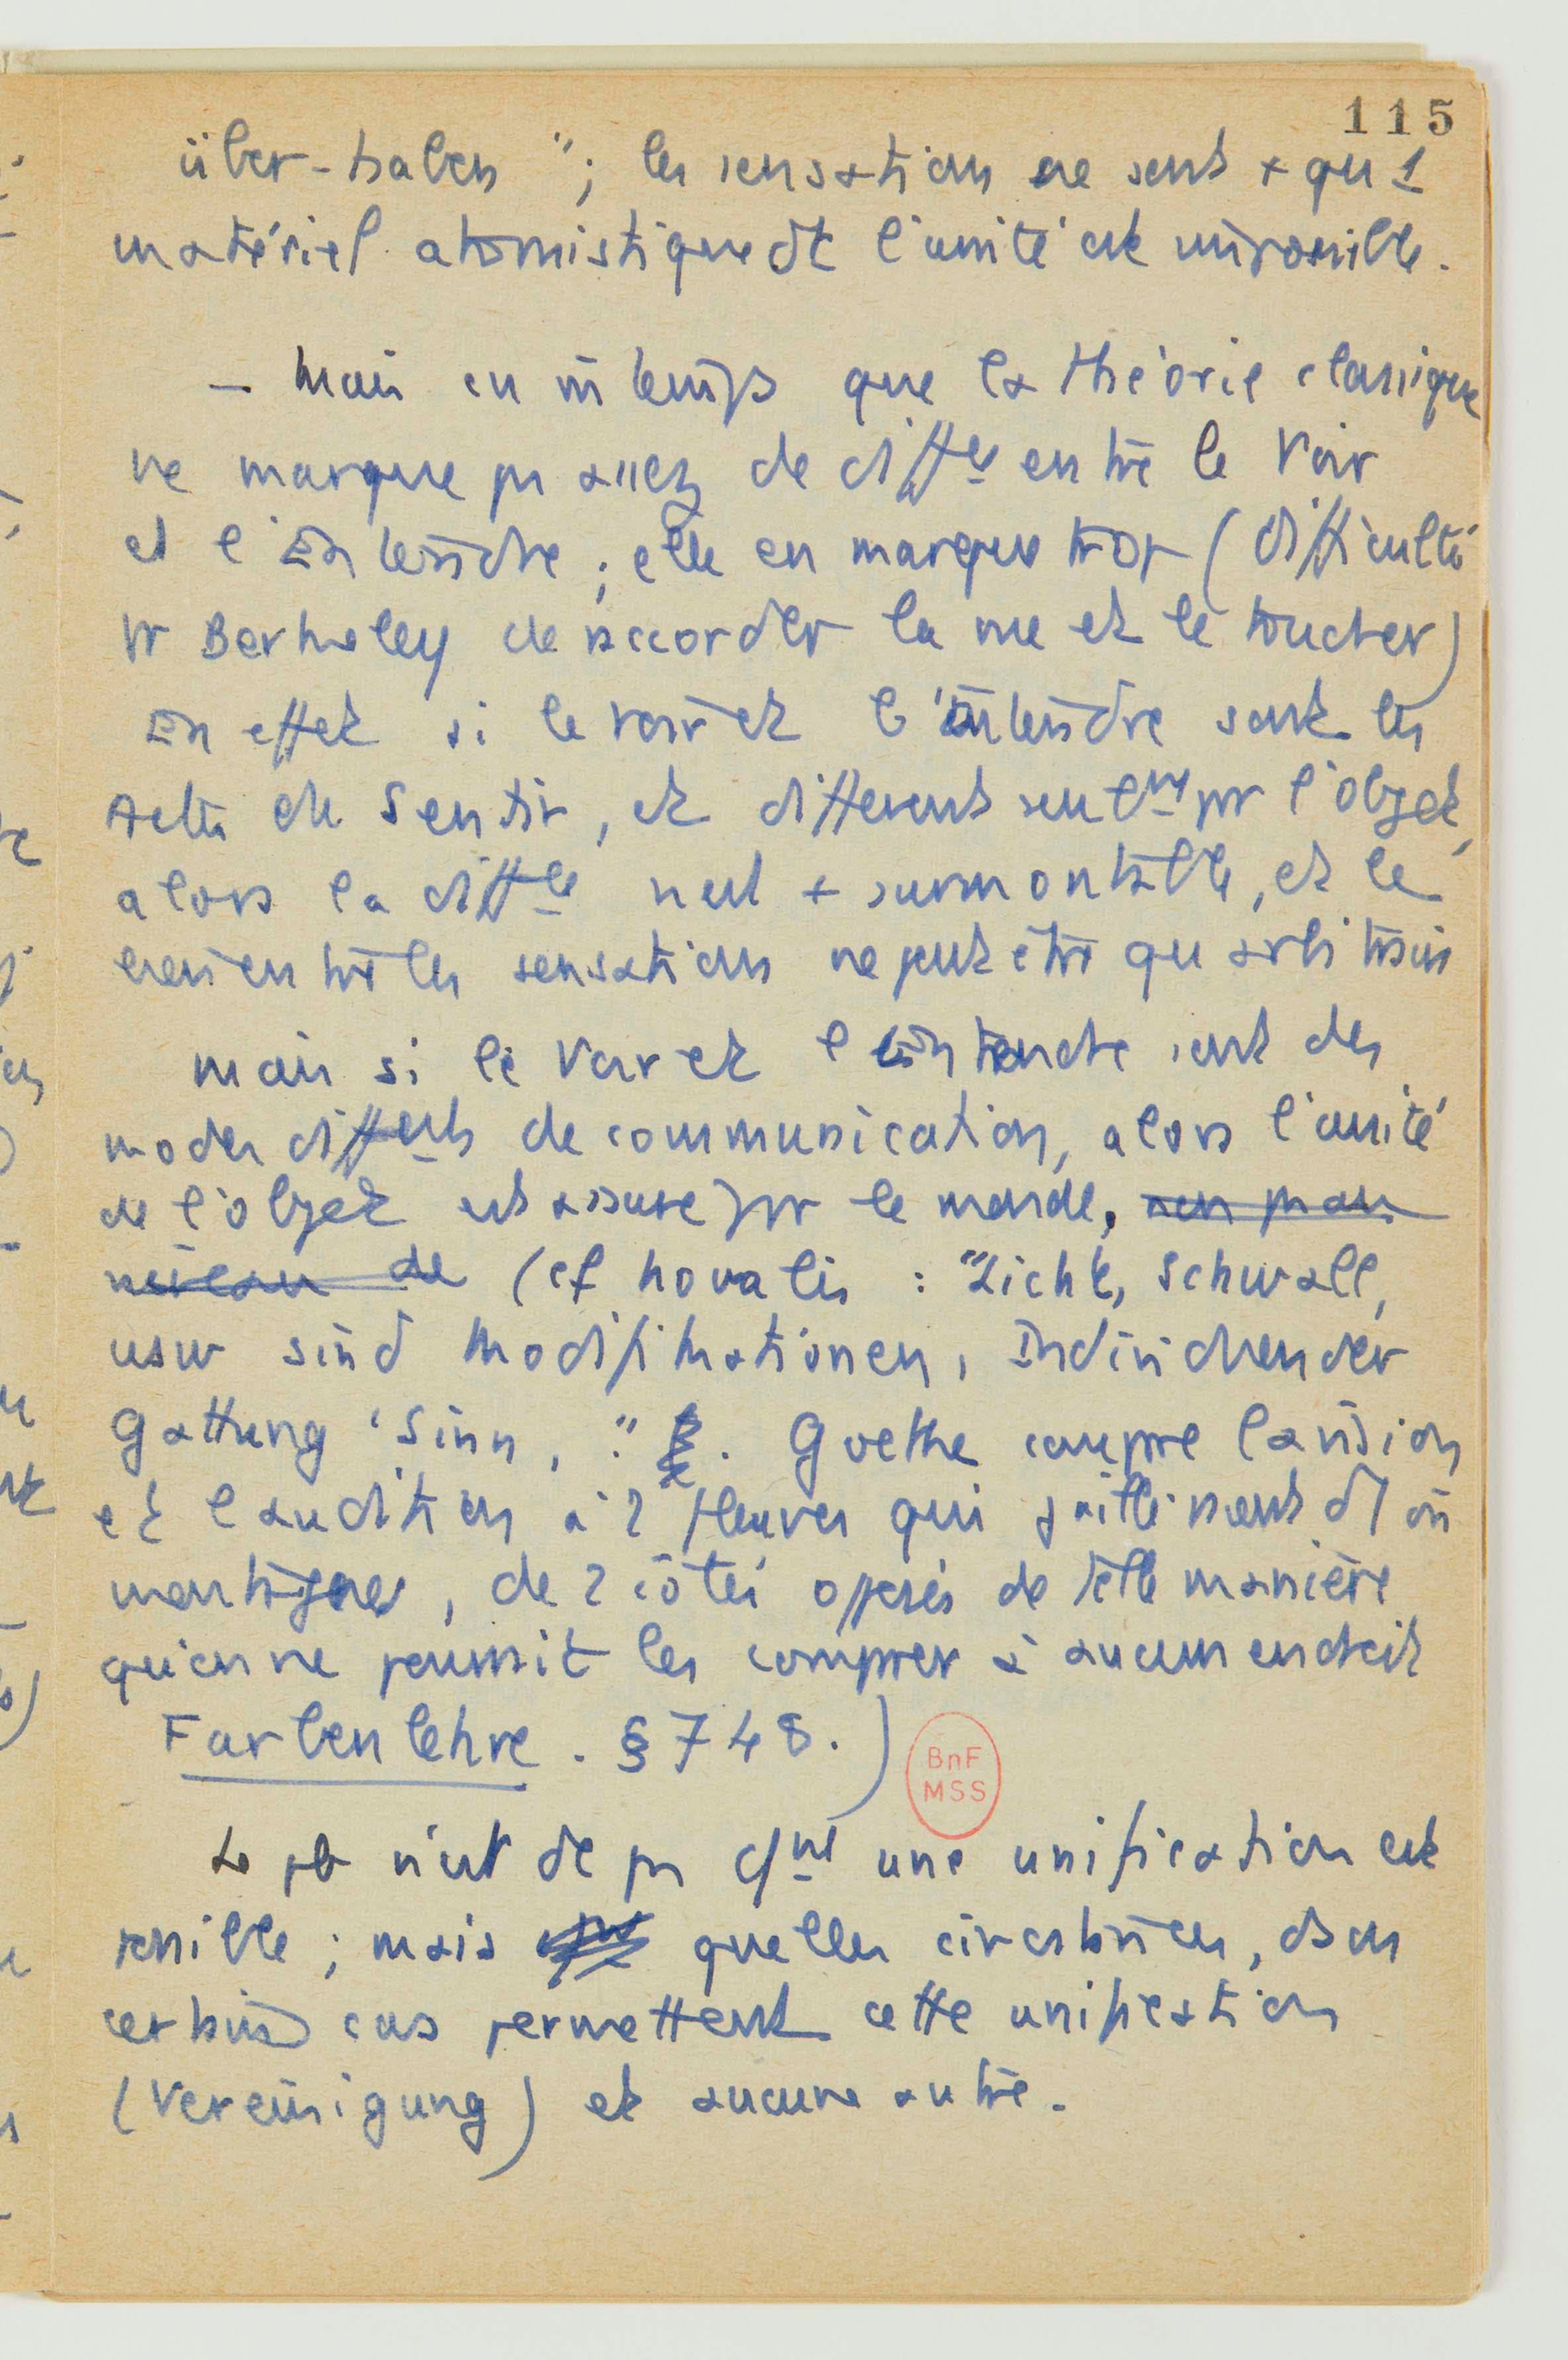 115
über-haben"; les sensations ne sont + qu 1
matériel atomistique dt l'unité est impossible.
– Mais en m̄ temps que la théorie classique
ne marque pas assez de diffce entre le Voir
et l'Entendre ; elle en marque trop (difficulté
pr Berkeley de raccorder la vue et le toucher)
En effet si le voir et l'entendre sont les
Actes du Sentir, et diffèrent seulmt par l'objet,
alors la diffce n'est + surmontable, et le
lien entre les sensations ne peut être qu arbitraire
mais si le Voir et l'entendre sont des
modes diffents de communication, alors l'unité
de l'objet est assurée par le monde, non pas au
niveau de (cf Novalis : "Licht, Schwall,
usw sind Modifikationen, Individuen der
Gattung 'Sinn, ". Goethe compare la vision
et l'audition à 2 fleuves qui jaillissent d'1 m̄
montagne, de 2 côtés opposés de telle manière
qu'on ne pourrait les comparer à aucun endroit
Farbenlehre. § 748.)
BnF
MSS
Le pb n'est dc pas cmt une unification est
possible ; mais quelles circonstances, dans
certains cas permettent cette unification
(Vereinigung) et aucune autre.